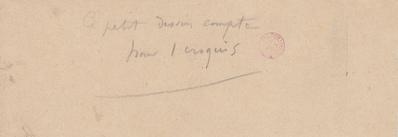 Ce petit dessin compte
pour 1 croquis